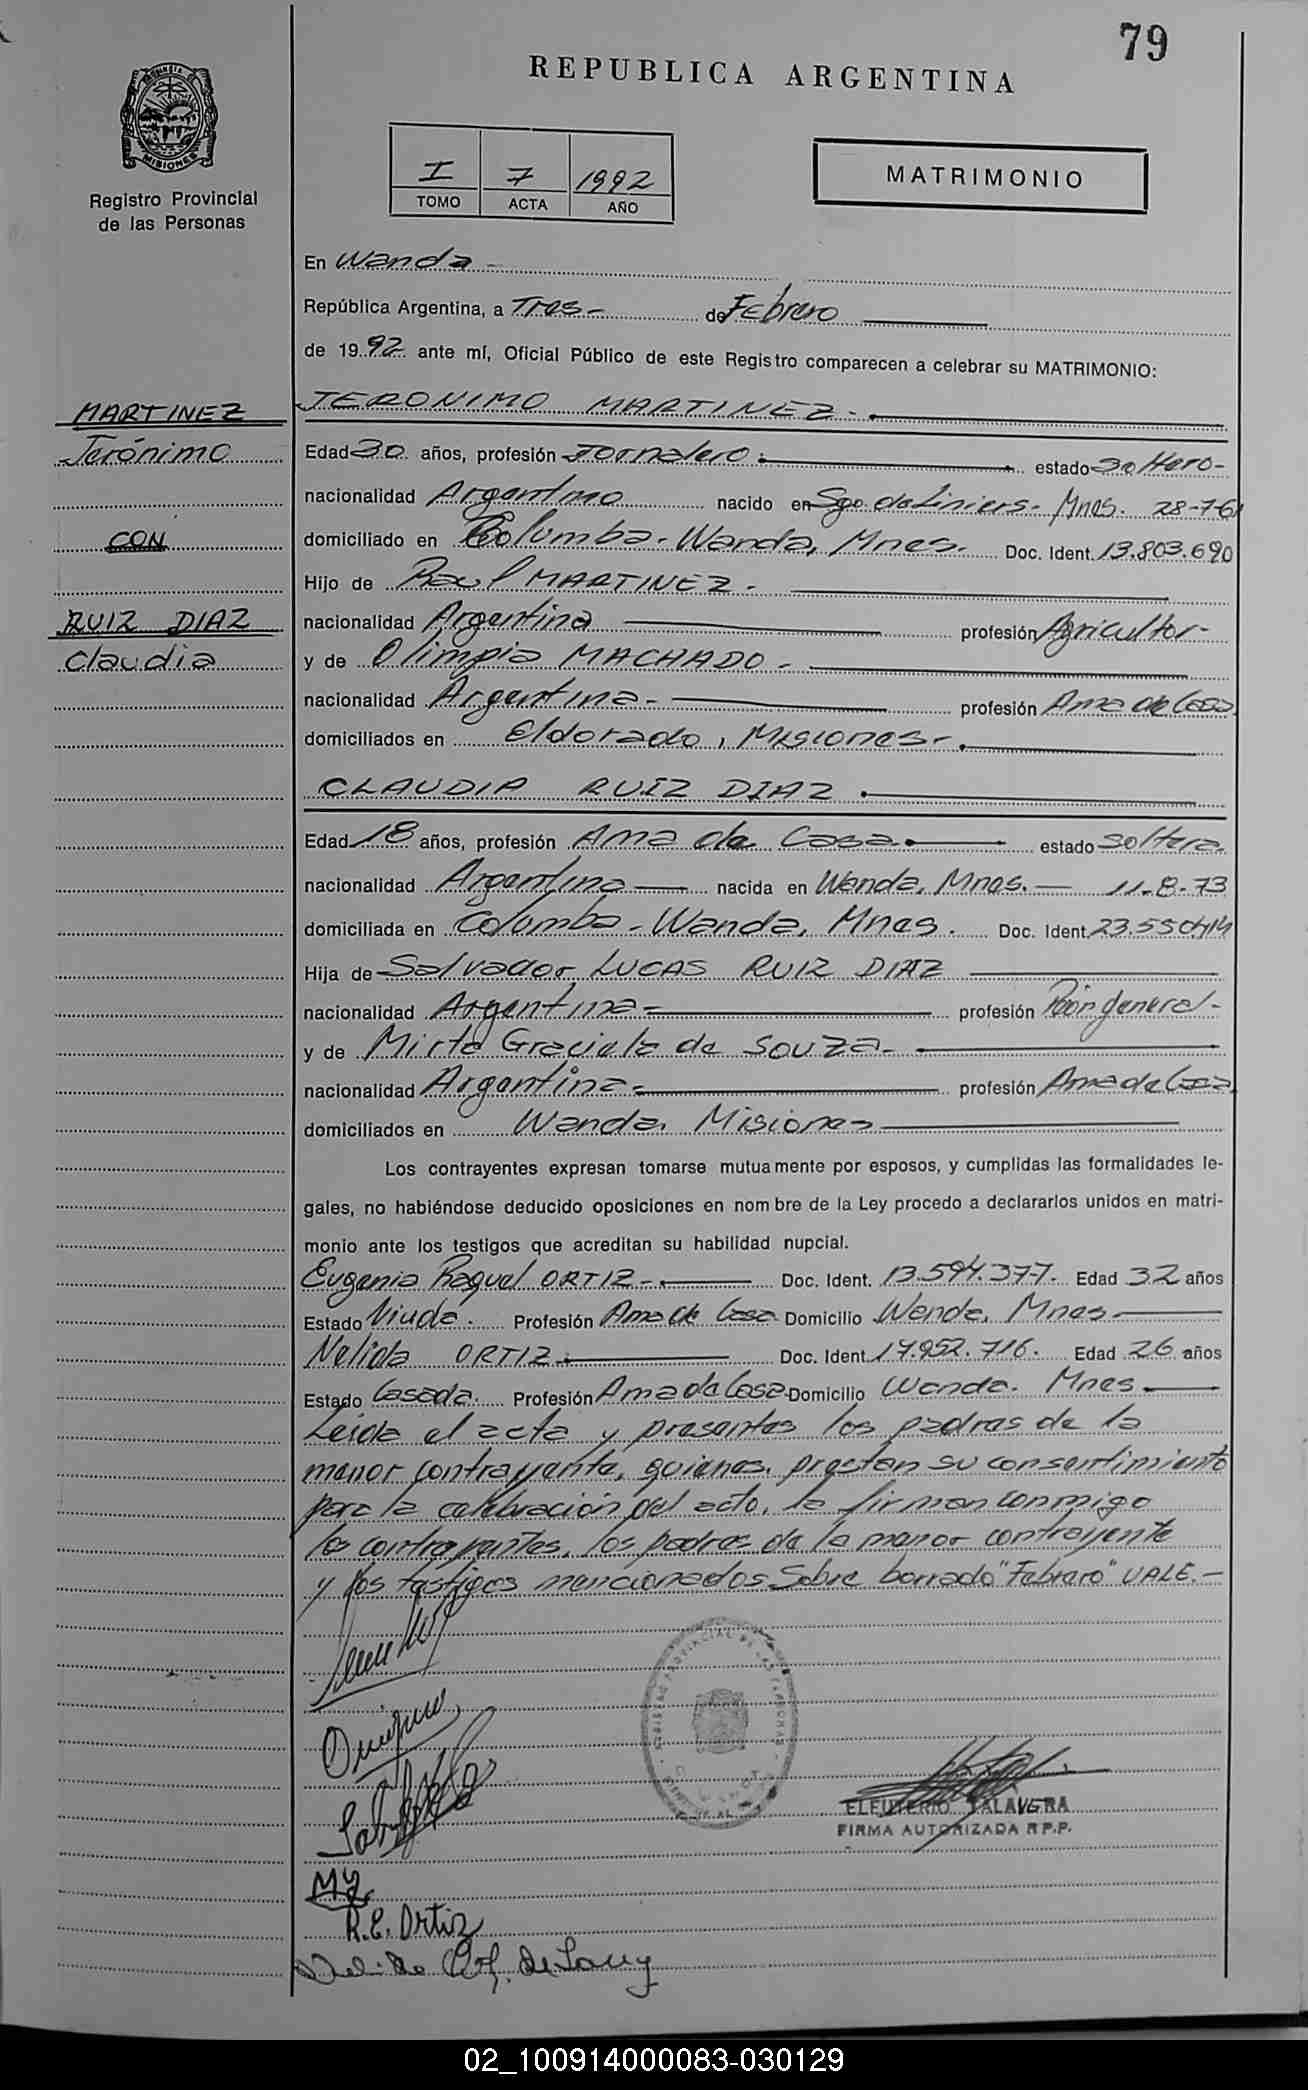 79
REPUBLICA ARGENTINA
PROVINCIA DE
MISIONES
Registro Provincial
de las Personas
I 7 1992
TOMO ACTA AÑO
MATRIMONIO
En Wanda -
República Argentina, a Tres- de Febrero
de 1992 ante mí, Oficial Público de este Registro comparecen a celebrar su MATRIMONIO:
MARTINEZ
Jerónimo
CON
RUIZ DIAZ
Claudia
JERONIMO MARTINEZ.
Edad 30 años, profesión Jornalero. estado soltero-
nacionalidad Argentino nacido en Sgo. de Liniers- Mnes. 28-7-61
domiciliado en Columba- Wanda, Mnes. Doc. Ident. 13.803.690
Hijo de Raul MARTINEZ.
nacionalidad Argentina profesión Agricultor-
y de Olimpia MACHADO-
nacionalidad Argentina- profesión Ama de Casa.
domiciliados en Eldorado, Misiones-.
CLAUDIA RUIZ DIAZ.
Edad 18 años, profesión Ama de Casa. estado soltera.
nacionalidad Argentina nacida en Wanda, Mnes. 11-8-73
domiciliada en Columba- Wanda, Mnes. Doc. Ident. 23.550.414
Hija de Salvador LUCAS RUIZ DIAZ
nacionalidad Argentina- profesión Peón general-
y de Mirta Graciela de SOUZA-
nacionalidad Argentina- profesión Ama de Casa.
domiciliados en Wanda, Misiones
Los contrayentes expresan tomarse mutuamente por esposos, y cumplidas las formalidades le-
gales, no habiéndose deducido oposiciones en nombre de la Ley procedo a declararlos unidos en matri-
monio ante los testigos que acreditan su habilidad nupcial.
Eugenia Raquel ORTIZ- Doc. Ident. 13.594.377. Edad 32 años
Estado Viuda. Profesión Ama de Casa Domicilio Wanda, Mnes
Nelida ORTIZ. Doc. Ident. 17.952.716. Edad 26 años
Estado Casada. Profesión Ama de Casa Domicilio Wanda. Mnes
Leida el acta y presentes los padres de la
menor contrayente, quienes, prestan su consentimiento
para la celebración del acto, la firman conmigo
los contrayentes, los padres de la menor contrayente
y los testigos mencionados. Sobre borrado "Febrero" VALE.-
ELEUTERIO TALAVERA
FIRMA AUTORIZADA R.P.P.
R.E. Ortiz
02_100914000083-030129